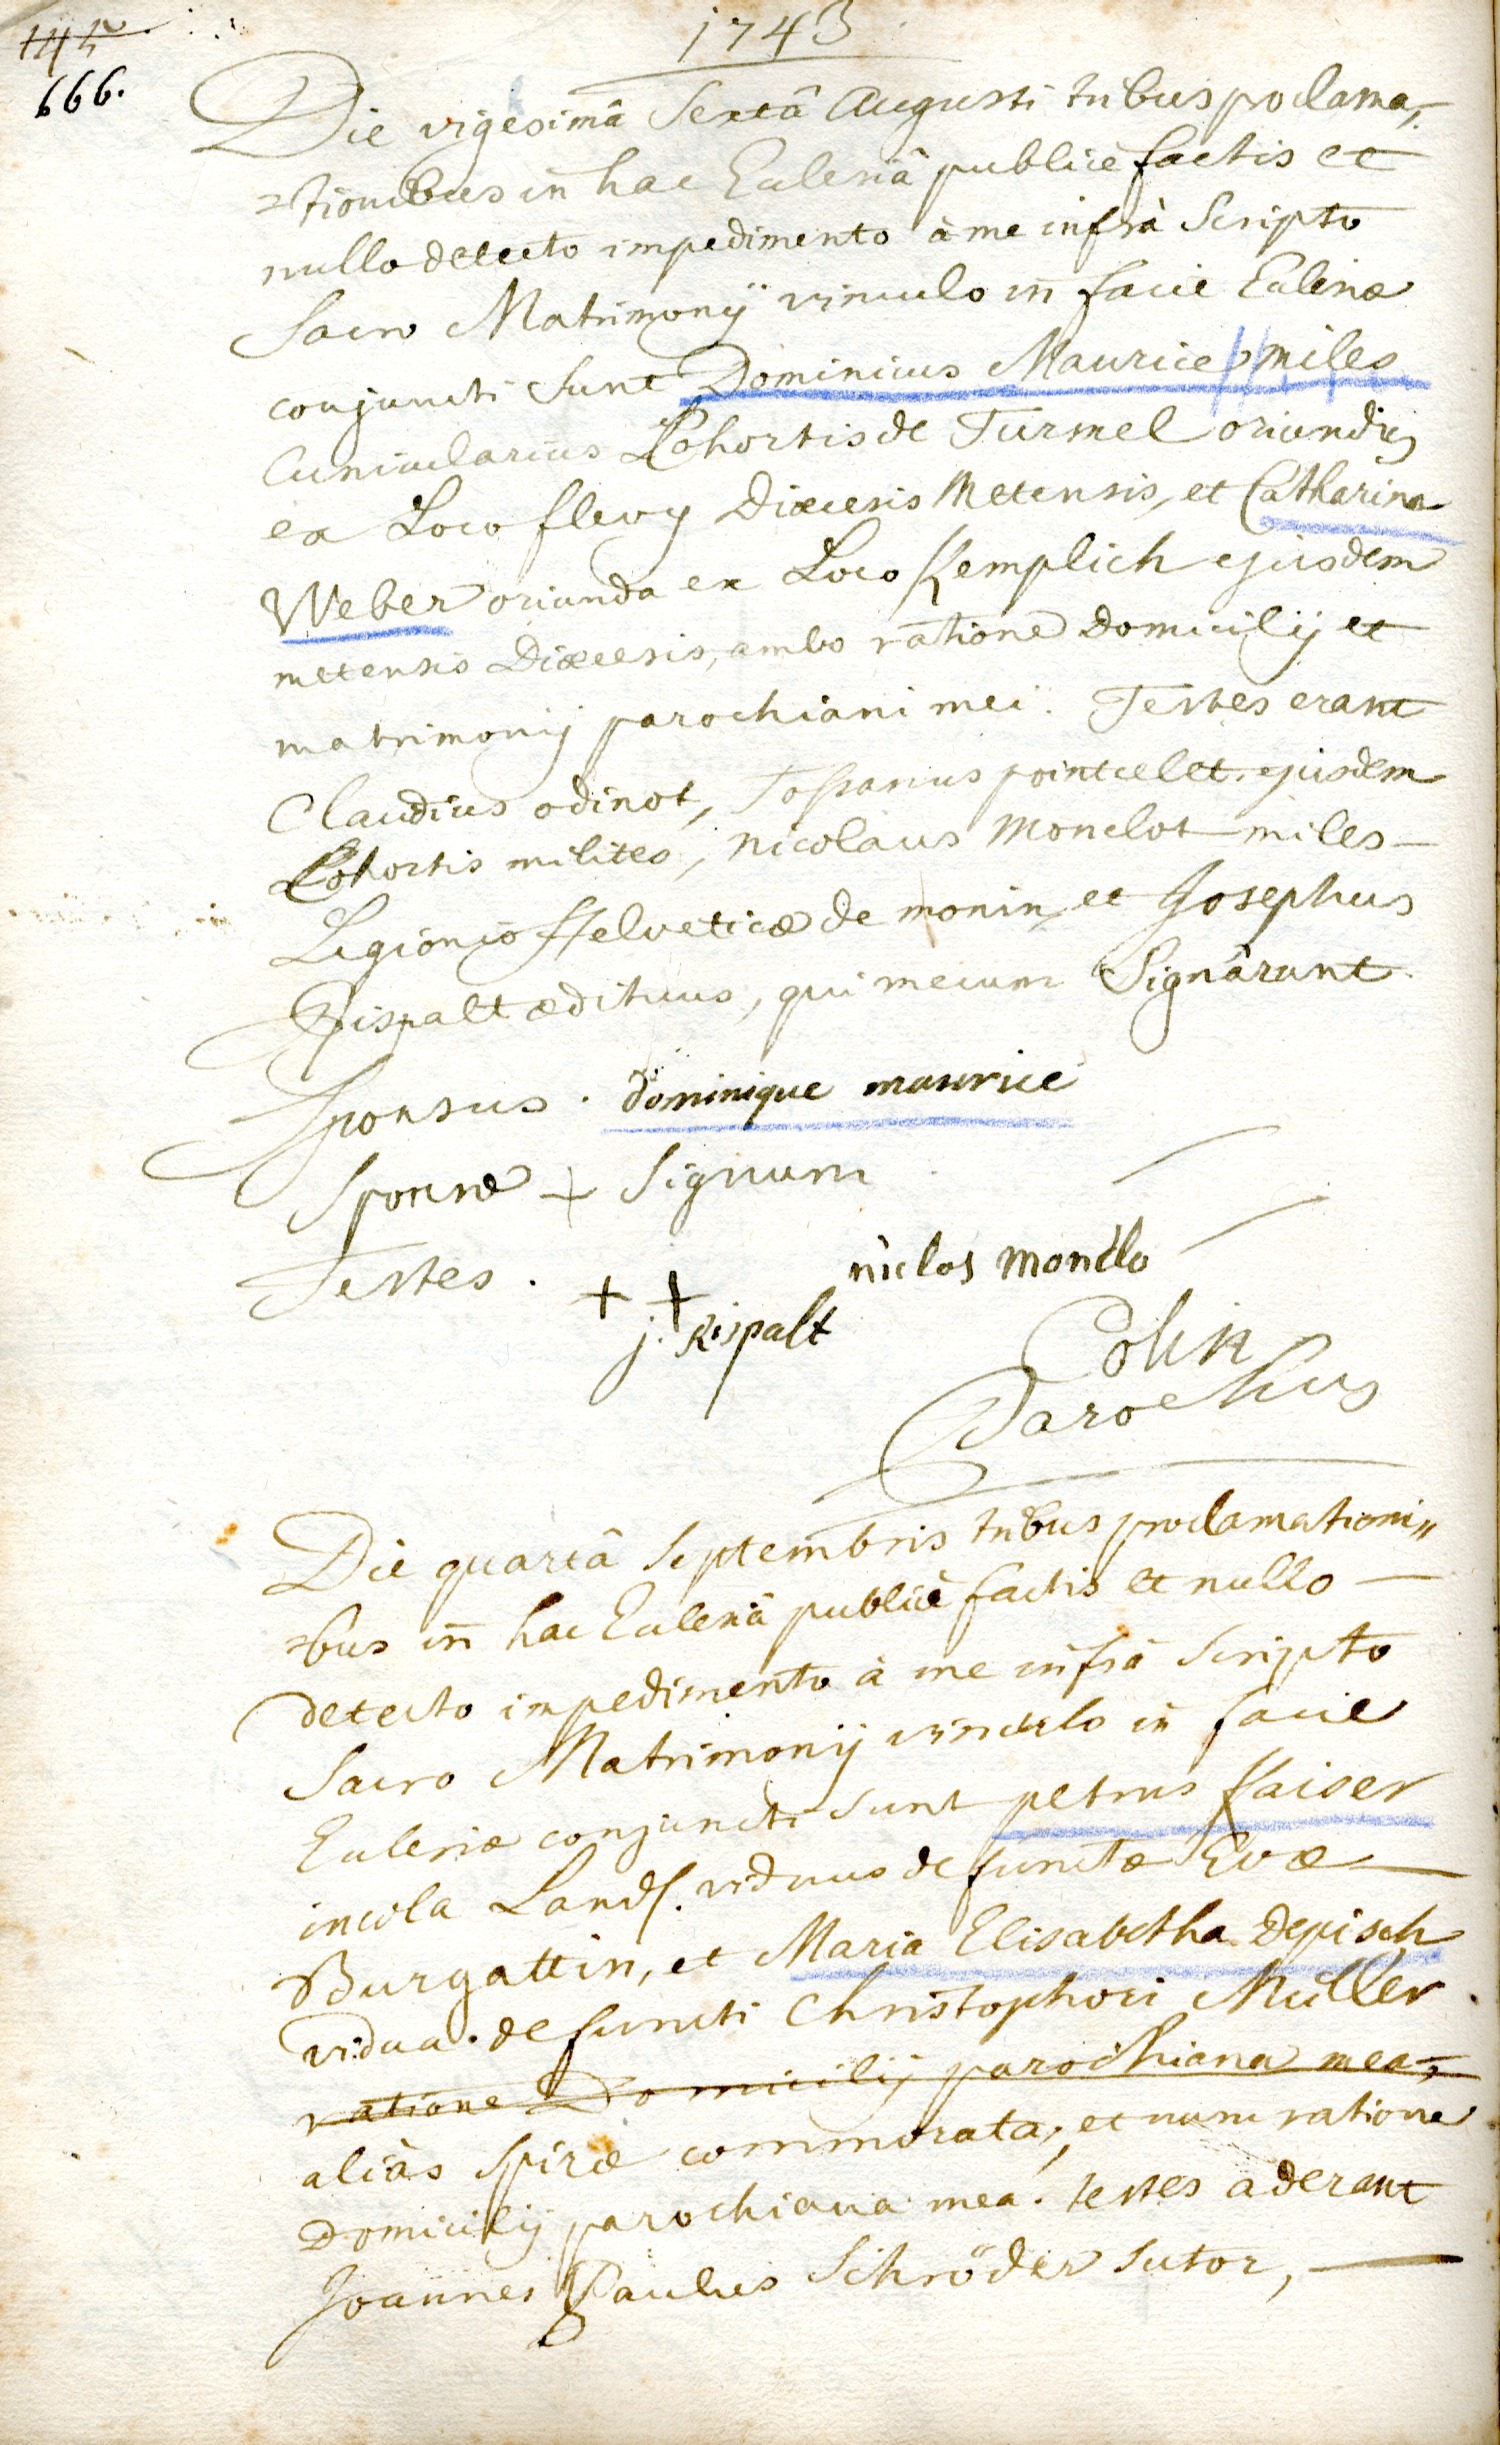 1743
145
666.
Die vigesimâ Sextâ Augusti tribus proclama,,
=tionibus in hac Ecclesiâ publicè factis et
nullo detecto impedimento à me infrà Scripto
Sacro Matrimonÿ vinculo in facie Ecclesiæ
conjuncti Sunt Dominicus Maurice miles
Cunicularius Cohortis de Turmel oriundus
ex Loco flevy Diœcesis Metensis, et Catharina
Weber oriunda ex Loco Kemplich ejusdem
metensis Diœcesis, ambo ratione Domicilij et
matrimonij parochiani mei. Testes erant
Claudius odinot, Tossanus pointcelet ejusdem
Cohortis milites, Nicolaus Monclot miles
Legionis Helveticæ de monin, et Josephus
Rispalt ædituus, qui mecum Signârunt.
Sponsus. dominique maurice
Sponsæ + Signum
Testes. + + niclos Monclo
j. Rispalt
Colin
Parochus
Die quartâ Septembris tribus proclamationi,,
=bus in hac Ecclesiâ publicè factis et nullo
detecto impedimento à me infrà Scripto
Sacro Matrimonij vinculo in facie
Ecclesiæ conjuncti Sunt petrus Kaiser
incola Land. viduus defunctæ Evæ
Burgattin, et Maria Elisabetha Depisch
vidua defuncti Christophori Müller
ratione Domicilij parochiana mea,
aliàs Spiræ commorata, et nunc ratione
Domicilij parochiana mea. testes aderant
Joannes Paulus Schröder Sutor,